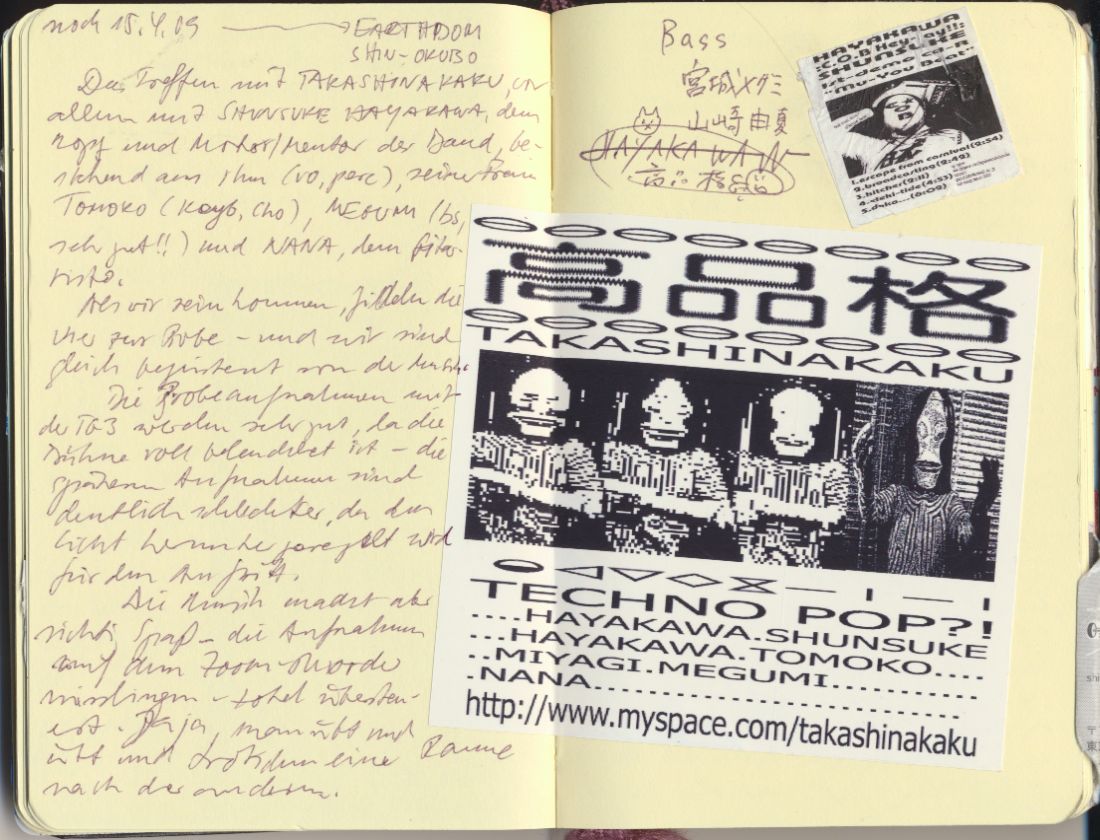 noch 15.4.09 → EARTHDOM
SHIN-OKUBO
Das Treffen mit TAKASHINAKAKU, vor
allem mit SHUNSUKE HAYAKAWA, dem
Kopf und Motor/Mentor der Band, be-
stehend aus Shun (vo, perc), seiner Frau
TOMOKO (Keyb, Cho), MEGUMI (bs,
sehr gut!!) und NANA, dem Gitar-
risten.
Als wir kommen, die
vier zur Probe – und wir sind
gleich begeistert von der Musik.
Die Probeaufnahmen mit
der werden sehr gut, da die
Bühne voll beleuchtet ist – die
späteren Aufnahmen sind
deutlich schlechter, da das
Licht heruntergeregelt wird
für den Auftritt.
Die Musik macht aber
richtig Spaß – die Aufnahmen
auf dem Zoom-Recorder
misslingen – total übersteu-
ert. Tja ja, man übt und
übt und trotzdem eine Panne
nach der anderen.
Bass
宮城メグミ
山崎由夏
HAYAKAWA
高品格
HAYAKAWA
:C.O.B Hey-Jay!!:
SHUNSUKE
1st-demo cd-R
"Mu-You Beat"
1.escape from carnival(2:54)
2.broadcasting(2:42)
3.hitcher(2:11)
4.ideki-tide(4:53)
5.d4ka...(6:09)
高品格
TAKASHINAKAKU
TECHNO POP?!
....HAYAKAWA.SHUNSUKE
...HAYAKAWA.TOMOKO....
..MIYAGI.MEGUMI...........
.NANA..........................
http://www.myspace.com/takashinakaku